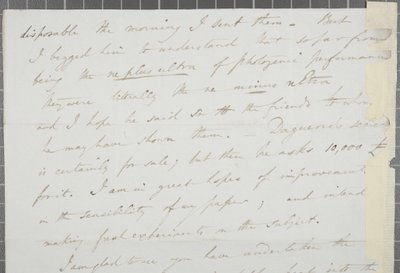 disposable the morning I sent them - But
I begged him to understand that so far from
being the ne plus ultra of photogenic performance
they were literally the ne minus ultra
and I hope he said so to the friends to whom
he may have shown them. - Daguerre's secret
is certainly for sale, but then he asks 10,000 £
for it. I am in great hopes of improvement
in the sensibility of my paper; and intend
making fresh experiments on the subject.
I am glad to see you have undertaken the
into the